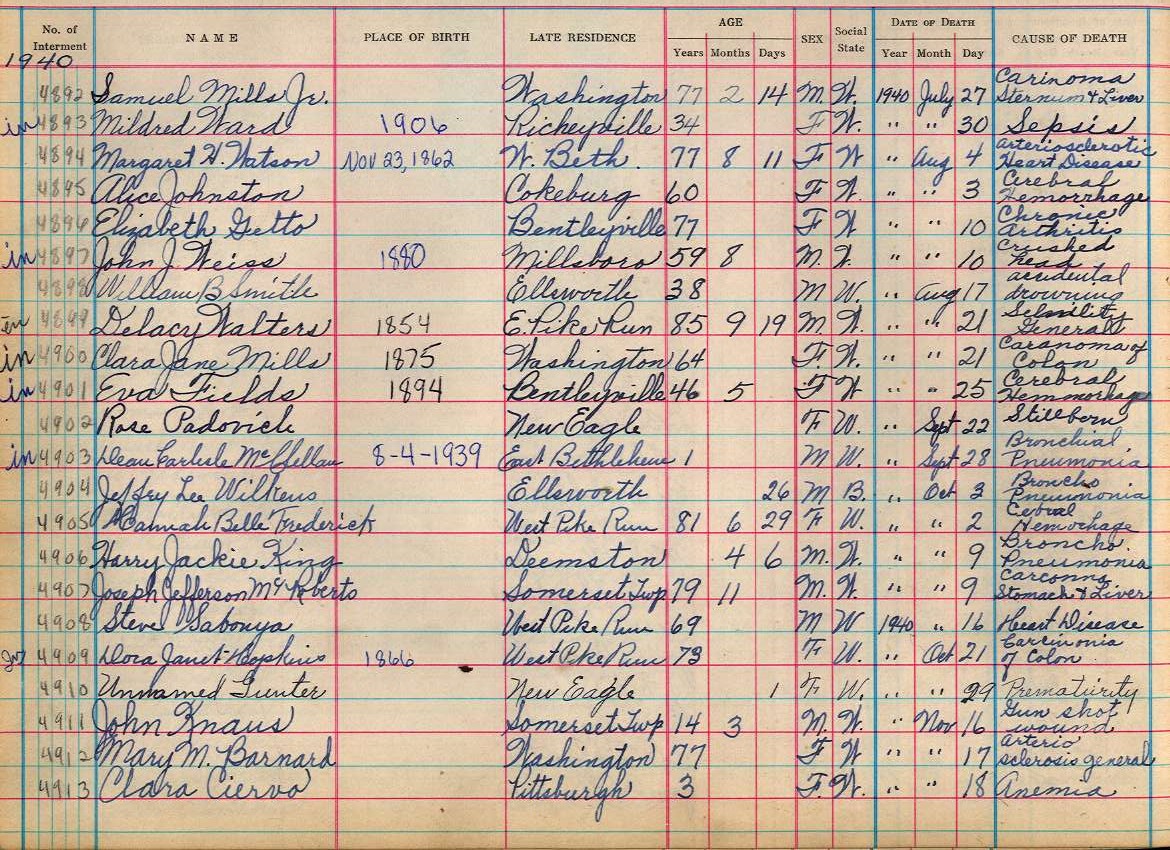 No. of Interment NAME PLACE OF BIRTH LATE RESIDENCE AGE Years Months Days SEX Social State DATE OF DEATH Year Month Day CAUSE OF DEATH
1940
4892 Samuel Mills Jr. Washington 77 2 14 M. W. 1940 July 27 Carinoma Sternum & Liver
in 4893 Mildred Ward 1906 Richeyville 34 F W. " " 30 Sepsis
4894 Margaret H. Watson Nov 23, 1862 W. Beth. 77 8 11 F W " Aug 4 arteriosclerotic Heart Disease
4895 Alice Johnston Cokeburg 60 F W. " " 3 Cerebral Hemorrhage
4896 Elizabeth Getto Bentleyville 77 F W. " " 10 Chronic arthritis
in 4897 John J. Weiss 1880 Millsboro 59 8 M. W. " " 10 crushed head
4898 William B Smith Ellsworth 38 M W. " Aug 17 accidental drowning
4899 Delacy Walters 1854 E. Pike Run 85 9 19 M. W. " " 21 General
in 4900 Clara Jane Mills 1875 Washington 64 F. W. " " 21 Caranoma of Colon
in 4901 Eva Fields 1894 Bentleyville 46 5 F W " " 25 Cerebral Hemmorhage
4902 Rose Padovich New Eagle F W. " Sept 22 Stillborn
in 4903 Dean Carlisle McClellan 8-4-1939 East Bethlehem 1 M W. " Sept 28 Bronchial Pneumonia
4904 Jeffry Lee Wilkens Ellsworth 26 M B. " Oct 3 Broncho Pneumonia
4905 Hannah Belle Frederick West Pike Run 81 6 29 F W. " " 2 Hemorhage
4906 Harry Jackie King Deemston 4 6 M. W. " " 9 Broncho. Pneumonia
4907 Joseph Jefferson McRoberts Somerset Twp 79 11 M. W. " " 9 Stomach & Liver
4908 Steve Sabonya West Pike Run 69 M W 1940 " 16 Heart Disease
4909 Dora Janet Hopkins 1866 West Pike Run 73 F W. " Oct 21 Carcinonia of Colon
4910 Unnamed Gunter New Eagle 1 F W. " " 29 Prematurity
4911 John Knaus Somerset Twp 14 3 M. W. " Nov 16 Gun shot wound
4912 Mary M. Barnard Washington 77 F W " " 17 Arterio sclerosis general
4913 Clara Ciervo Pittsburgh 3 F. W. " 18 Anemia